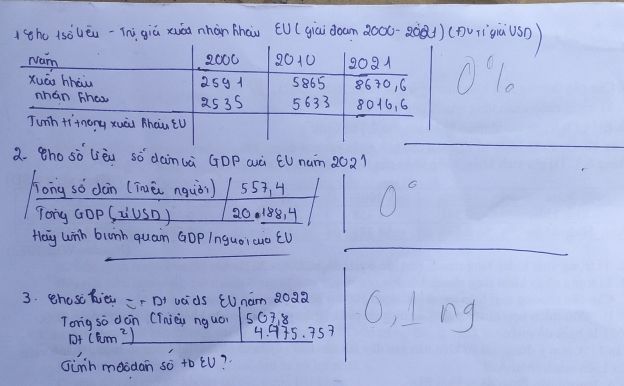 1 Cho số liệu - Trị giá xuất nhập khẩu EU (giai đoạn 2000-2021) (Đv tỉ giá USD)
Năm 2000 2010 2021 0%
Xuất khẩu 2591 5865 8670,6
nhập khẩu 2535 5633 8016,6
Tính tỉ trọng xuất khẩu EU
2. Cho số liệu số dân và GDP của EU năm 2021
Tổng số dân (Triệu người) 557,4 0°
Tổng GDP (tỉ USD) 20.188,4
Hãy tính bình quân GDP/người của EU
3. Cho số liệu Dt và ds EU năm 2022
Tổng số dân (Triệu người 507,8 0,1 ng
Dt (km²) 4.975.757
Tính mđ dân số tb EU?